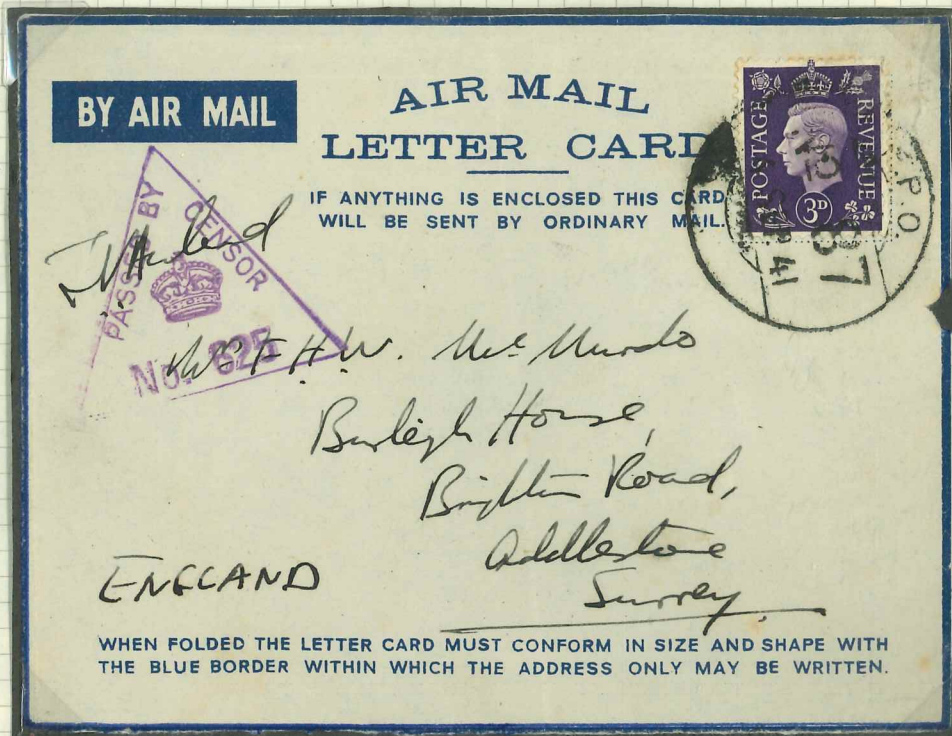 BY AIR MAIL
AIR MAIL
LETTER CARD
IF ANYTHING IS ENCLOSED THIS CARD
WILL BE SENT BY ORDINARY MAIL.
POSTAGE
REVENUE
3D
F.P.O.
41
PASSED BY
CENSOR
No. 625
F. H. W. McMurdo
Burleigh House,
Brighton Road,
Addlestone
Surrey
ENGLAND
WHEN FOLDED THE LETTER CARD MUST CONFORM IN SIZE AND SHAPE WITH
THE BLUE BORDER WITHIN WHICH THE ADDRESS ONLY MAY BE WRITTEN.